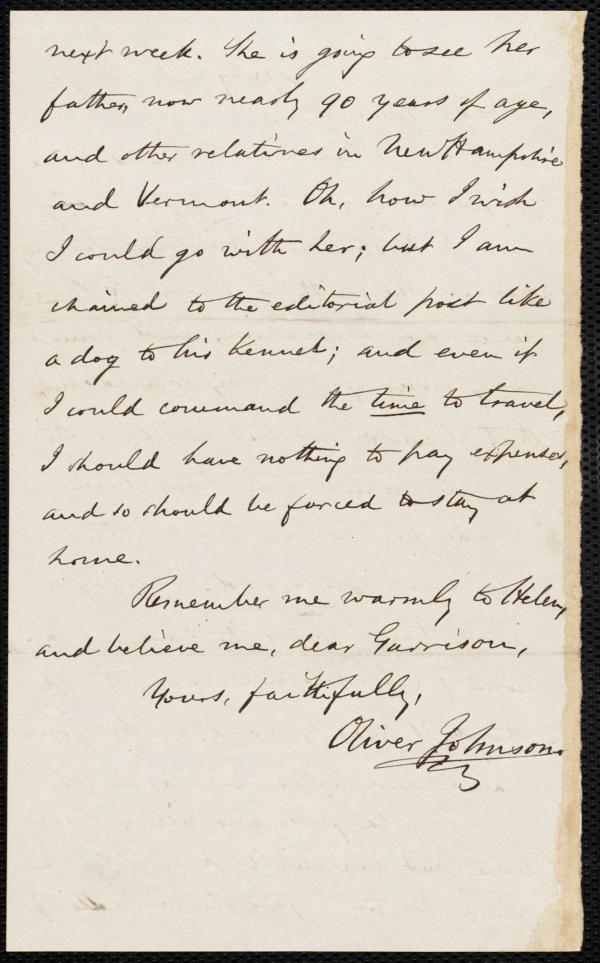 next week. She is going to see her
father, now nearly 90 years of age,
and other relatives in New Hampshire
and Vermont. Oh, how I wish
I could go with her; but I am
chained to the editorial post like
a dog to his kennel; and even if
I could command the time to travel,
I should have nothing to pay expenses,
and so should be forced to stay at
home.
Remember me warmly to Helen,
and believe me, dear Garrison,
Yours, faithfully,
Oliver Johnson.